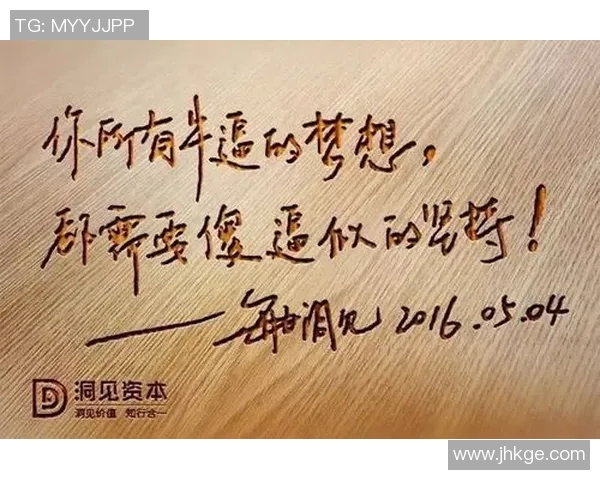 TG: MYYJJPP
你所有牛逼的梦想，
都需要傻逼似的坚持！
——每日洞见 2016.05.04
洞见资本
洞见价值 知行合一
www.jhkge.com